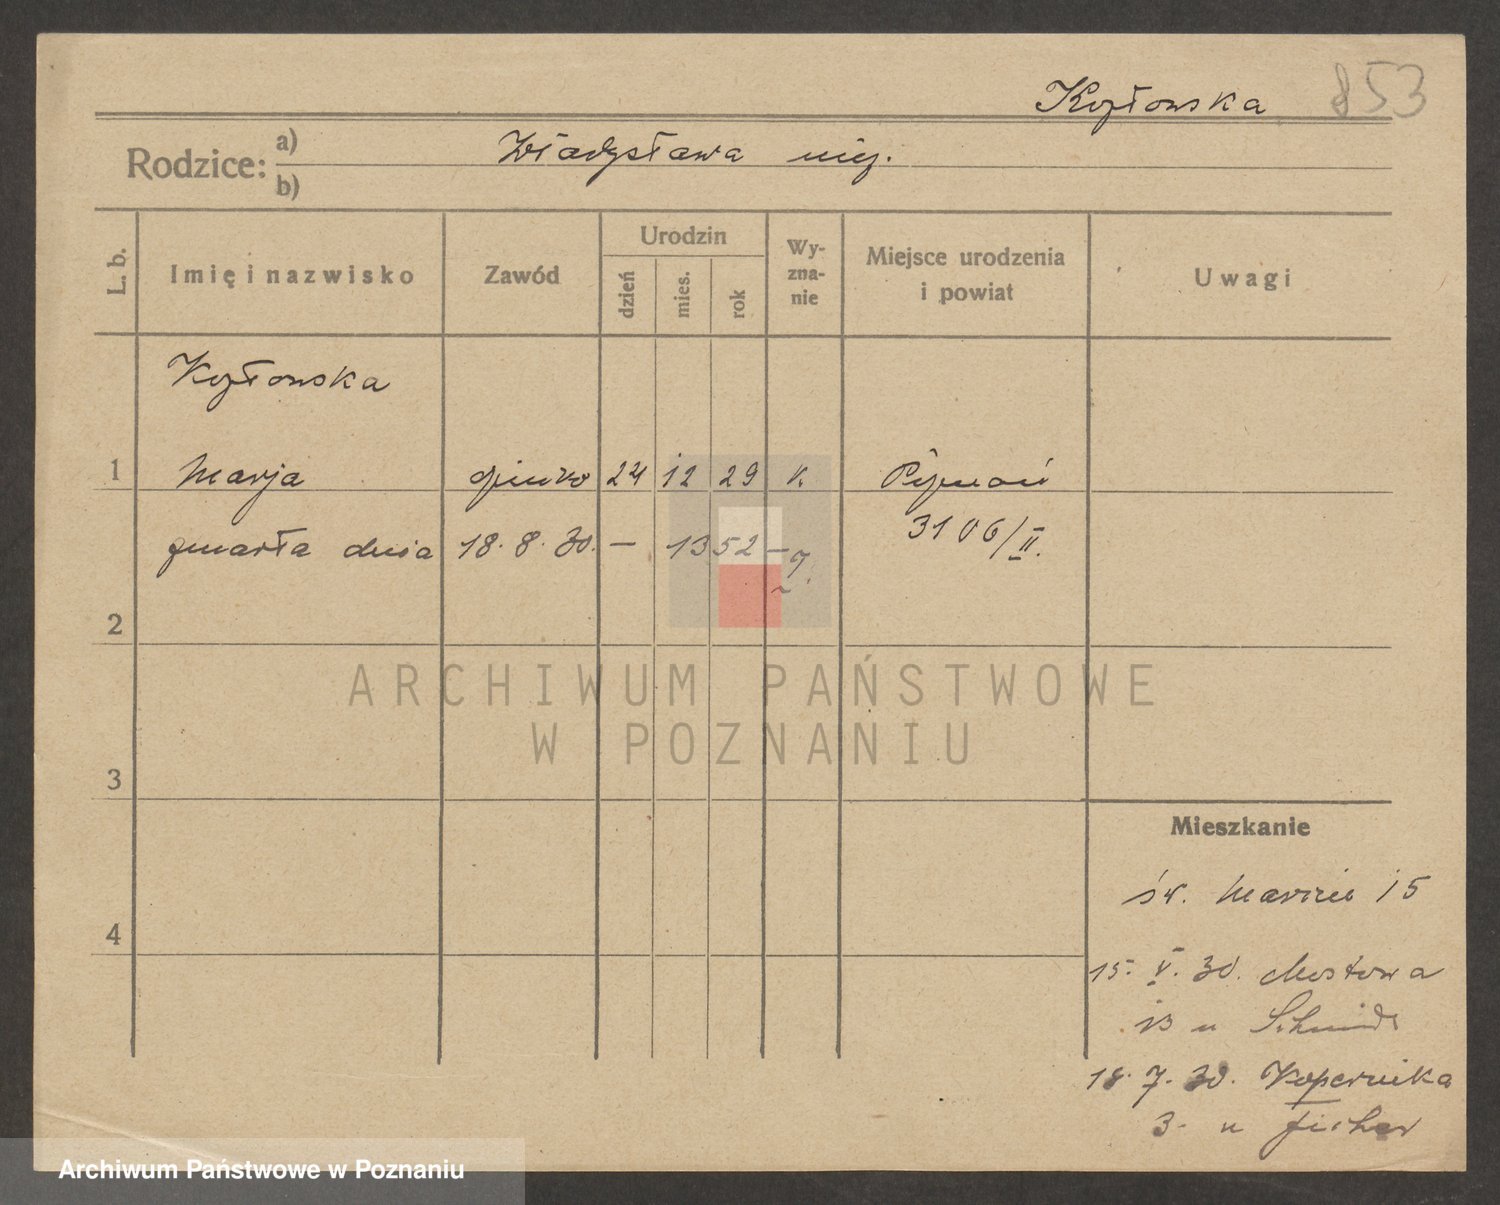 Kozłowska 853
Rodzice: a) Władysława niez.
b)
L. b.
Imię i nazwisko
Zawód
Urodzin
dzień
mies.
rok
Wy-
zna-
nie
Miejsce urodzenia
i powiat
Uwagi
Kozłowska
1 Marja dziecko 24 12 29 k. Poznań
3106/II.
zmarła dnia 18. 8. 30. — 1352 —
2
ARCHIWUM PAŃSTWOWE
W POZNANIU
3
Mieszkanie
św. Marcin 15
4
15. V. 30. Mostowa
13 u Schmidt
18. 7. 30. Kopernika
3. u Fischer
Archiwum Państwowe w Poznaniu